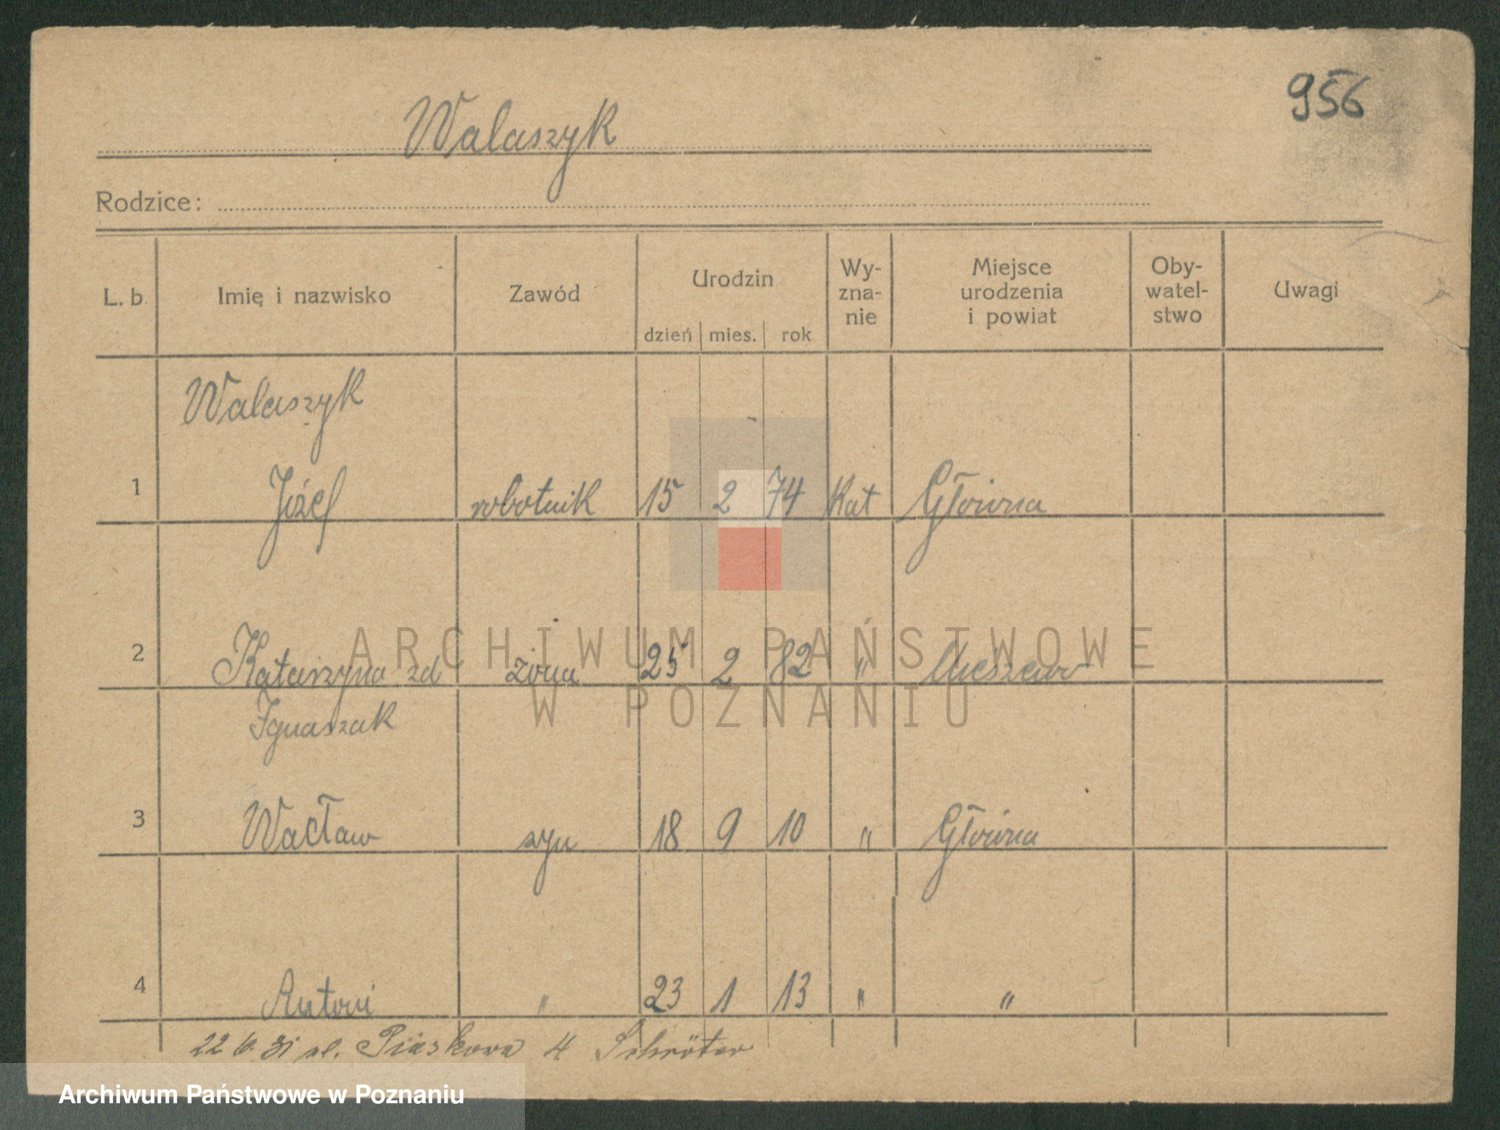 956
Walaszyk
Rodzice:
L. b. Imię i nazwisko Zawód Urodzin dzień mies. rok Wy-zna-nie Miejsce urodzenia i powiat Oby-watel-stwo Uwagi
Walaszyk
1 Józef robotnik 15 2 74 Kat Główna
2 Katarzyna zd żona 25 2 82 "
Ignaszak
3 Wacław syn 18 9 10 " Główna
4 Antoni " 23 1 13 " "
22 6. 31 ul. Piaskowa 4 Schröter
ARCHIWUM PAŃSTWOWE
W POZNANIU
Archiwum Państwowe w Poznaniu